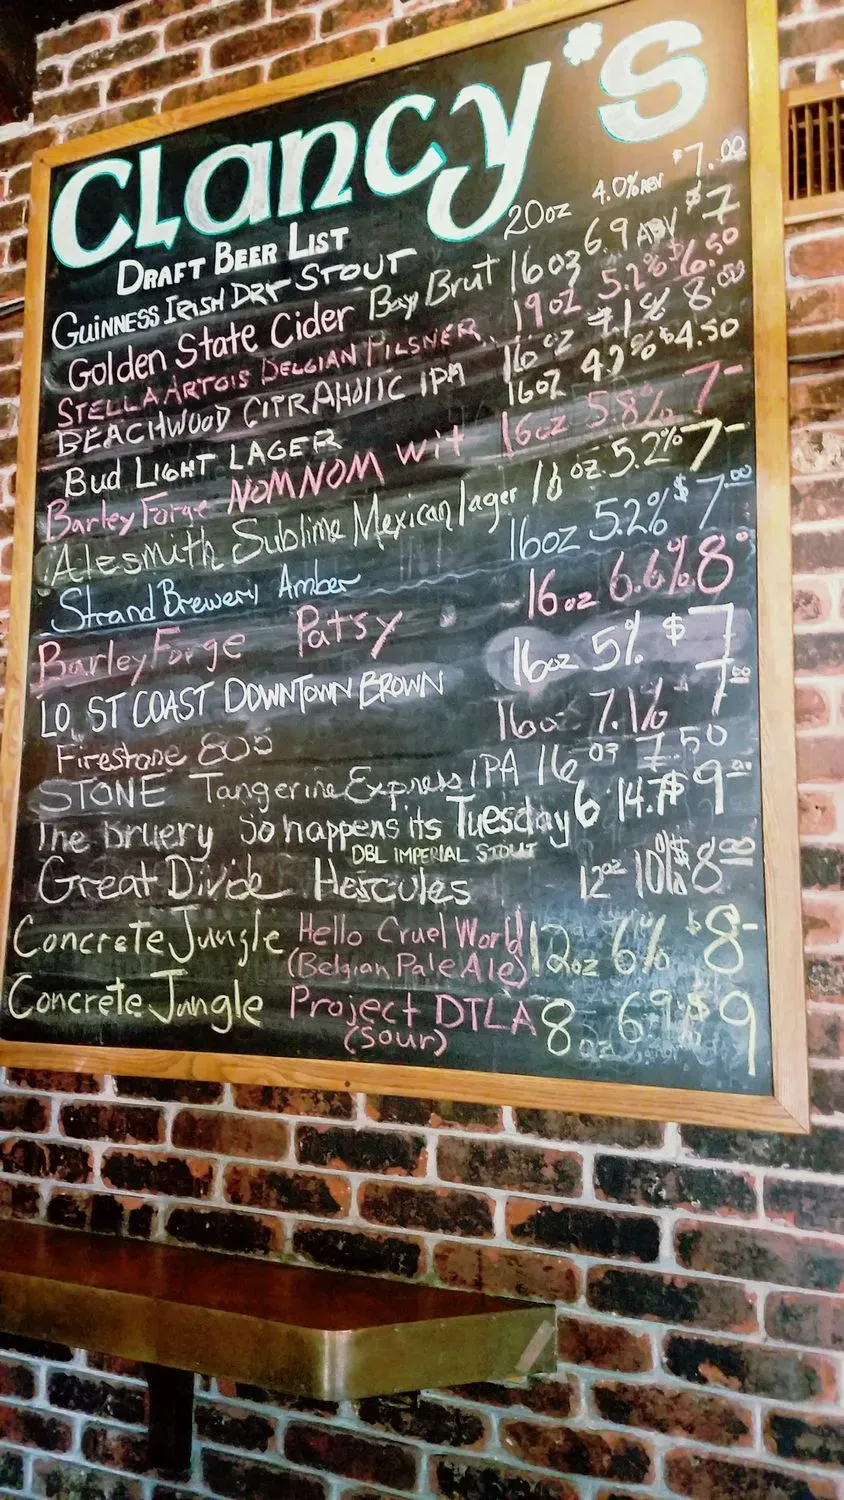 Clancy's
DRAFT BEER LIST
GUINNESS IRISH DRY STOUT 20oz 4.0% ABV $7.00
Golden State Cider Bay Brut 16oz 6.9 ABV $7
STELLA ARTOIS BELGIAN PILSNER 19oz 5.2% $6.50
BEACHWOOD CITRAHOLIC IPA 16oz 7.1% 8.00
Bud LIGHT LAGER 16oz 4.2% $4.50
Barley Forge NOMNOM wit 16oz 5.8% 7-
Alesmith Sublime Mexican lager 16oz 5.2% 7-
Strand Brewery Amber 16oz 5.2% $7.00
Barley Forge Patsy 16oz 6.6% 8
LO ST COAST DOWNTOWN BROWN 16oz 5% $7
Firestone 805 16oz 7.1% 7.00
STONE Tangerine Express IPA 16oz 7.50
The Bruery So happens its Tuesday 6 14.7 $9
DBL IMPERIAL STOUT
Great Divide Hercules 12oz 10% $8.00
Concrete Jungle Hello Cruel World 12oz 6% $8-
(Belgian Pale Ale)
Concrete Jungle Project DTLA 8oz $9
(Sour)